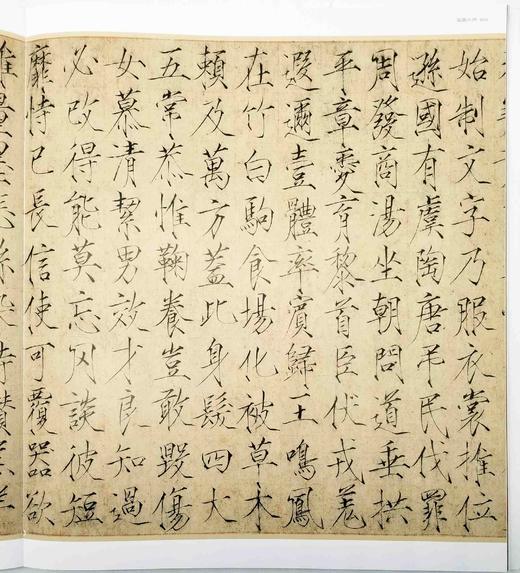 始制文字乃服衣裳推位
遜國有虞陶唐弔民伐罪
周發商湯坐朝問道垂拱
平章愛育黎首臣伏戎羌
遐邇壹體率賓歸王鳴鳳
在竹白駒食場化被草木
賴及萬方蓋此身髮四大
五常恭惟鞠養豈敢毀傷
女慕清絜男效才良知過
必改得能莫忘罔談彼短
靡恃己長信使可覆器欲